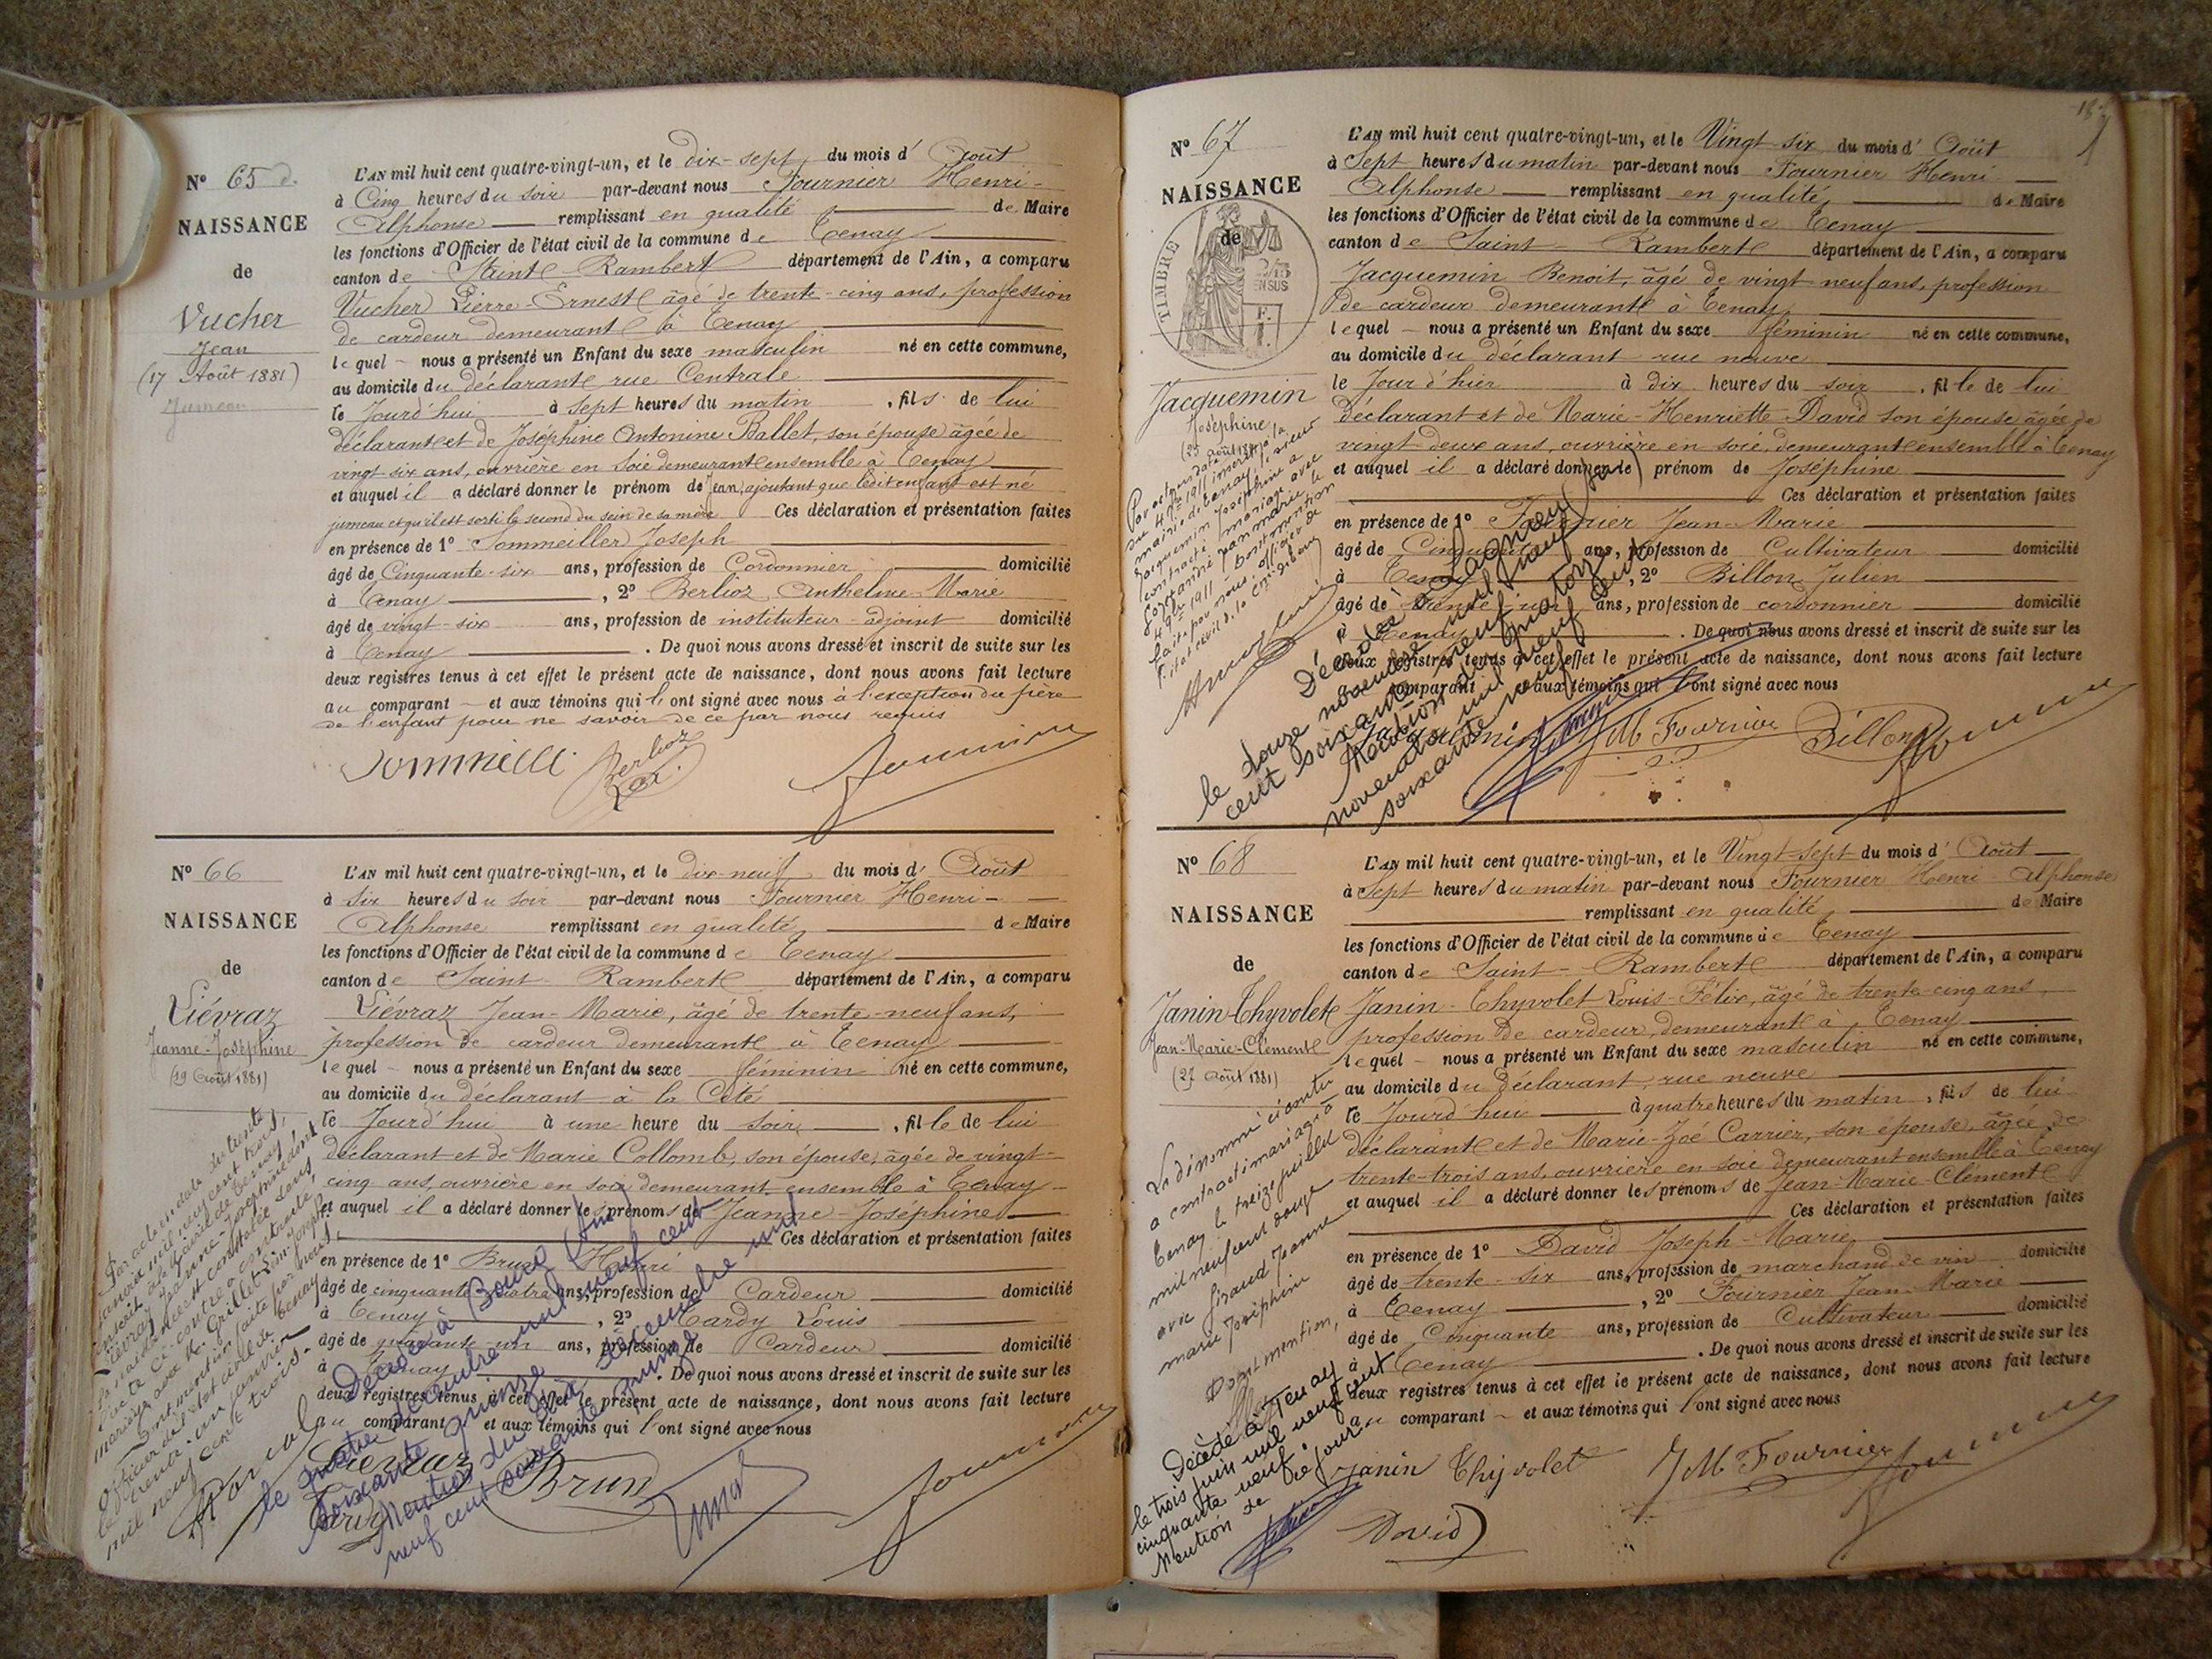 N° 65
NAISSANCE
de
Vucher
Jean
(17 Août 1881)
Jumeau
L'AN mil huit cent quatre-vingt-un, et le dix-sept du mois d'Août
à Cinq heures du soir par-devant nous Fournier Henri-
Alphonse remplissant en qualité de Maire
les fonctions d'Officier de l'état civil de la commune de Tenay
canton de Saint-Rambert département de l'Ain, a comparu
Vucher Pierre-Ernest âgé de trente-cinq ans, profession
de cardeur demeurant à Tenay
lequel nous a présenté un Enfant du sexe masculin né en cette commune,
au domicile du déclarant rue Centrale
le Jourd'hui à sept heures du matin, fils de lui
déclarant et de Joséphine Antonine Ballet, son épouse âgée de
vingt six ans, ouvrière en soie demeurant ensemble à Tenay
et auquel il a déclaré donner le prénom de Jean, ajoutant que ledit enfant est né
jumeau et qu'il est sorti le second du sein de sa mère Ces déclaration et présentation faites
en présence de 1° Sommeiller Joseph
âgé de Cinquante-six ans, profession de Cordonnier domicilié
à Tenay, 2° Berlioz Anthelme-Marie
âgé de vingt-six ans, profession de instituteur-adjoint domicilié
à Tenay. De quoi nous avons dressé et inscrit de suite sur les
deux registres tenus à cet effet le présent acte de naissance, dont nous avons fait lecture
au comparant et aux témoins qui l'ont signé avec nous à l'exception du père
de l'enfant pour ne savoir de ce par nous requis
Berlioz
Fournier
N° 66
NAISSANCE
de
Liévraz
Jeanne-Joséphine
(19 Août 1881)
L'AN mil huit cent quatre-vingt-un, et le dix-neuf du mois d'Août
à six heures du soir par-devant nous Fournier Henri-
Alphonse remplissant en qualité de Maire
les fonctions d'Officier de l'état civil de la commune de Tenay
canton de Saint-Rambert département de l'Ain, a comparu
Liévraz Jean-Marie, âgé de trente-neuf ans,
profession de cardeur demeurant à Tenay
lequel nous a présenté un Enfant du sexe féminin né en cette commune,
au domicile du déclarant à la Cité
le Jourd'hui à une heure du soir, fille de lui
déclarant et de Marie Collomb, son épouse, âgée de vingt-
cinq ans, ouvrière en soie demeurant ensemble à Tenay
et auquel il a déclaré donner les prénoms de Jeanne-Joséphine
Ces déclaration et présentation faites
en présence de 1° Brun Henri
âgé de cinquante quatre ans, profession de Cardeur domicilié
à Tenay, 2° Tardy Louis
âgé de quarante-un ans, profession de Cardeur domicilié
à Tenay. De quoi nous avons dressé et inscrit de suite sur les
deux registres tenus à cet effet le présent acte de naissance, dont nous avons fait lecture
au comparant et aux témoins qui l'ont signé avec nous
Liévraz
Brun
Tardy
Fournier
Décédée à Bourg (Ain)
le quatre décembre mil neuf cent
soixante
Mention du quinze décembre mil
neuf cent soixante
N° 67
NAISSANCE
de
TIMBRE
Jacquemin
Joséphine
(25 août 1881)
L'AN mil huit cent quatre-vingt-un, et le Vingt-six du mois d'Août
à Sept heures du matin par-devant nous Fournier Henri
Alphonse remplissant en qualité de Maire
les fonctions d'Officier de l'état civil de la commune de Tenay
canton de Saint-Rambert département de l'Ain, a comparu
Jacquemin Benoit, âgé de vingt neuf ans, profession
de cardeur demeurant à Tenay
lequel nous a présenté un Enfant du sexe féminin né en cette commune,
au domicile du déclarant rue neuve
le Jour d'hier à dix heures du soir, fille de lui
déclarant et de Marie-Henriette David son épouse âgée de
vingt deux ans, ouvrière en soie, demeurant ensemble à Tenay
et auquel il a déclaré donner le prénom de Joséphine
Ces déclaration et présentation faites
en présence de 1° Fournier Jean-Marie
âgé de Cinquante ans, profession de Cultivateur domicilié
à Tenay, 2° Billon Julien
âgé de trente ans, profession de cordonnier domicilié
à Tenay. De quoi nous avons dressé et inscrit de suite sur les
deux registres tenus à cet effet le présent acte de naissance, dont nous avons fait lecture
au comparant et aux témoins qui l'ont signé avec nous
Jacquemin
J M Fournier
Billon
Fournier
Décédée à Lagnieu
le douze novembre mil neuf
cent soixante neuf
Mention du quatorze
novembre mil neuf cent
soixante neuf
N° 68
NAISSANCE
de
Janin-Thyvolet
Jean-Marie-Clément
(27 Août 1881)
L'AN mil huit cent quatre-vingt-un, et le Vingt-sept du mois d'Août
à Sept heures du matin par-devant nous Fournier Henri Alphonse
remplissant en qualité de Maire
les fonctions d'Officier de l'état civil de la commune de Tenay
canton de Saint-Rambert département de l'Ain, a comparu
Janin-Thyvolet Louis-Félix, âgé de trente-cinq ans,
profession de cardeur, demeurant à Tenay
lequel nous a présenté un Enfant du sexe masculin né en cette commune,
au domicile du déclarant, rue neuve
le Jourd'hui à quatre heures du matin, fils de lui
déclarant et de Marie-Zoé Carrier, son épouse, âgée de
trente-trois ans, ouvrière en soie demeurant ensemble à Tenay
et auquel il a déclaré donner les prénoms de Jean-Marie-Clément
Ces déclaration et présentation faites
en présence de 1° David Joseph-Marie
âgé de trente-six ans, profession de marchand de vin domicilié
à Tenay, 2° Fournier Jean-Marie
âgé de Cinquante ans, profession de Cultivateur domicilié
à Tenay. De quoi nous avons dressé et inscrit de suite sur les
deux registres tenus à cet effet le présent acte de naissance, dont nous avons fait lecture
au comparant et aux témoins qui l'ont signé avec nous
Janin Thyvolet
J M Fournier
Fournier
David
Le dénommé ci contre
a contracté mariage à
Tenay le treize juillet
mil neuf cent douze
avec Giraud Jeanne
marie Joséphine
Dont mention,
Décédé à Tenay
le trois juin mil neuf cent
cinquante neuf.
Mention de ce jour